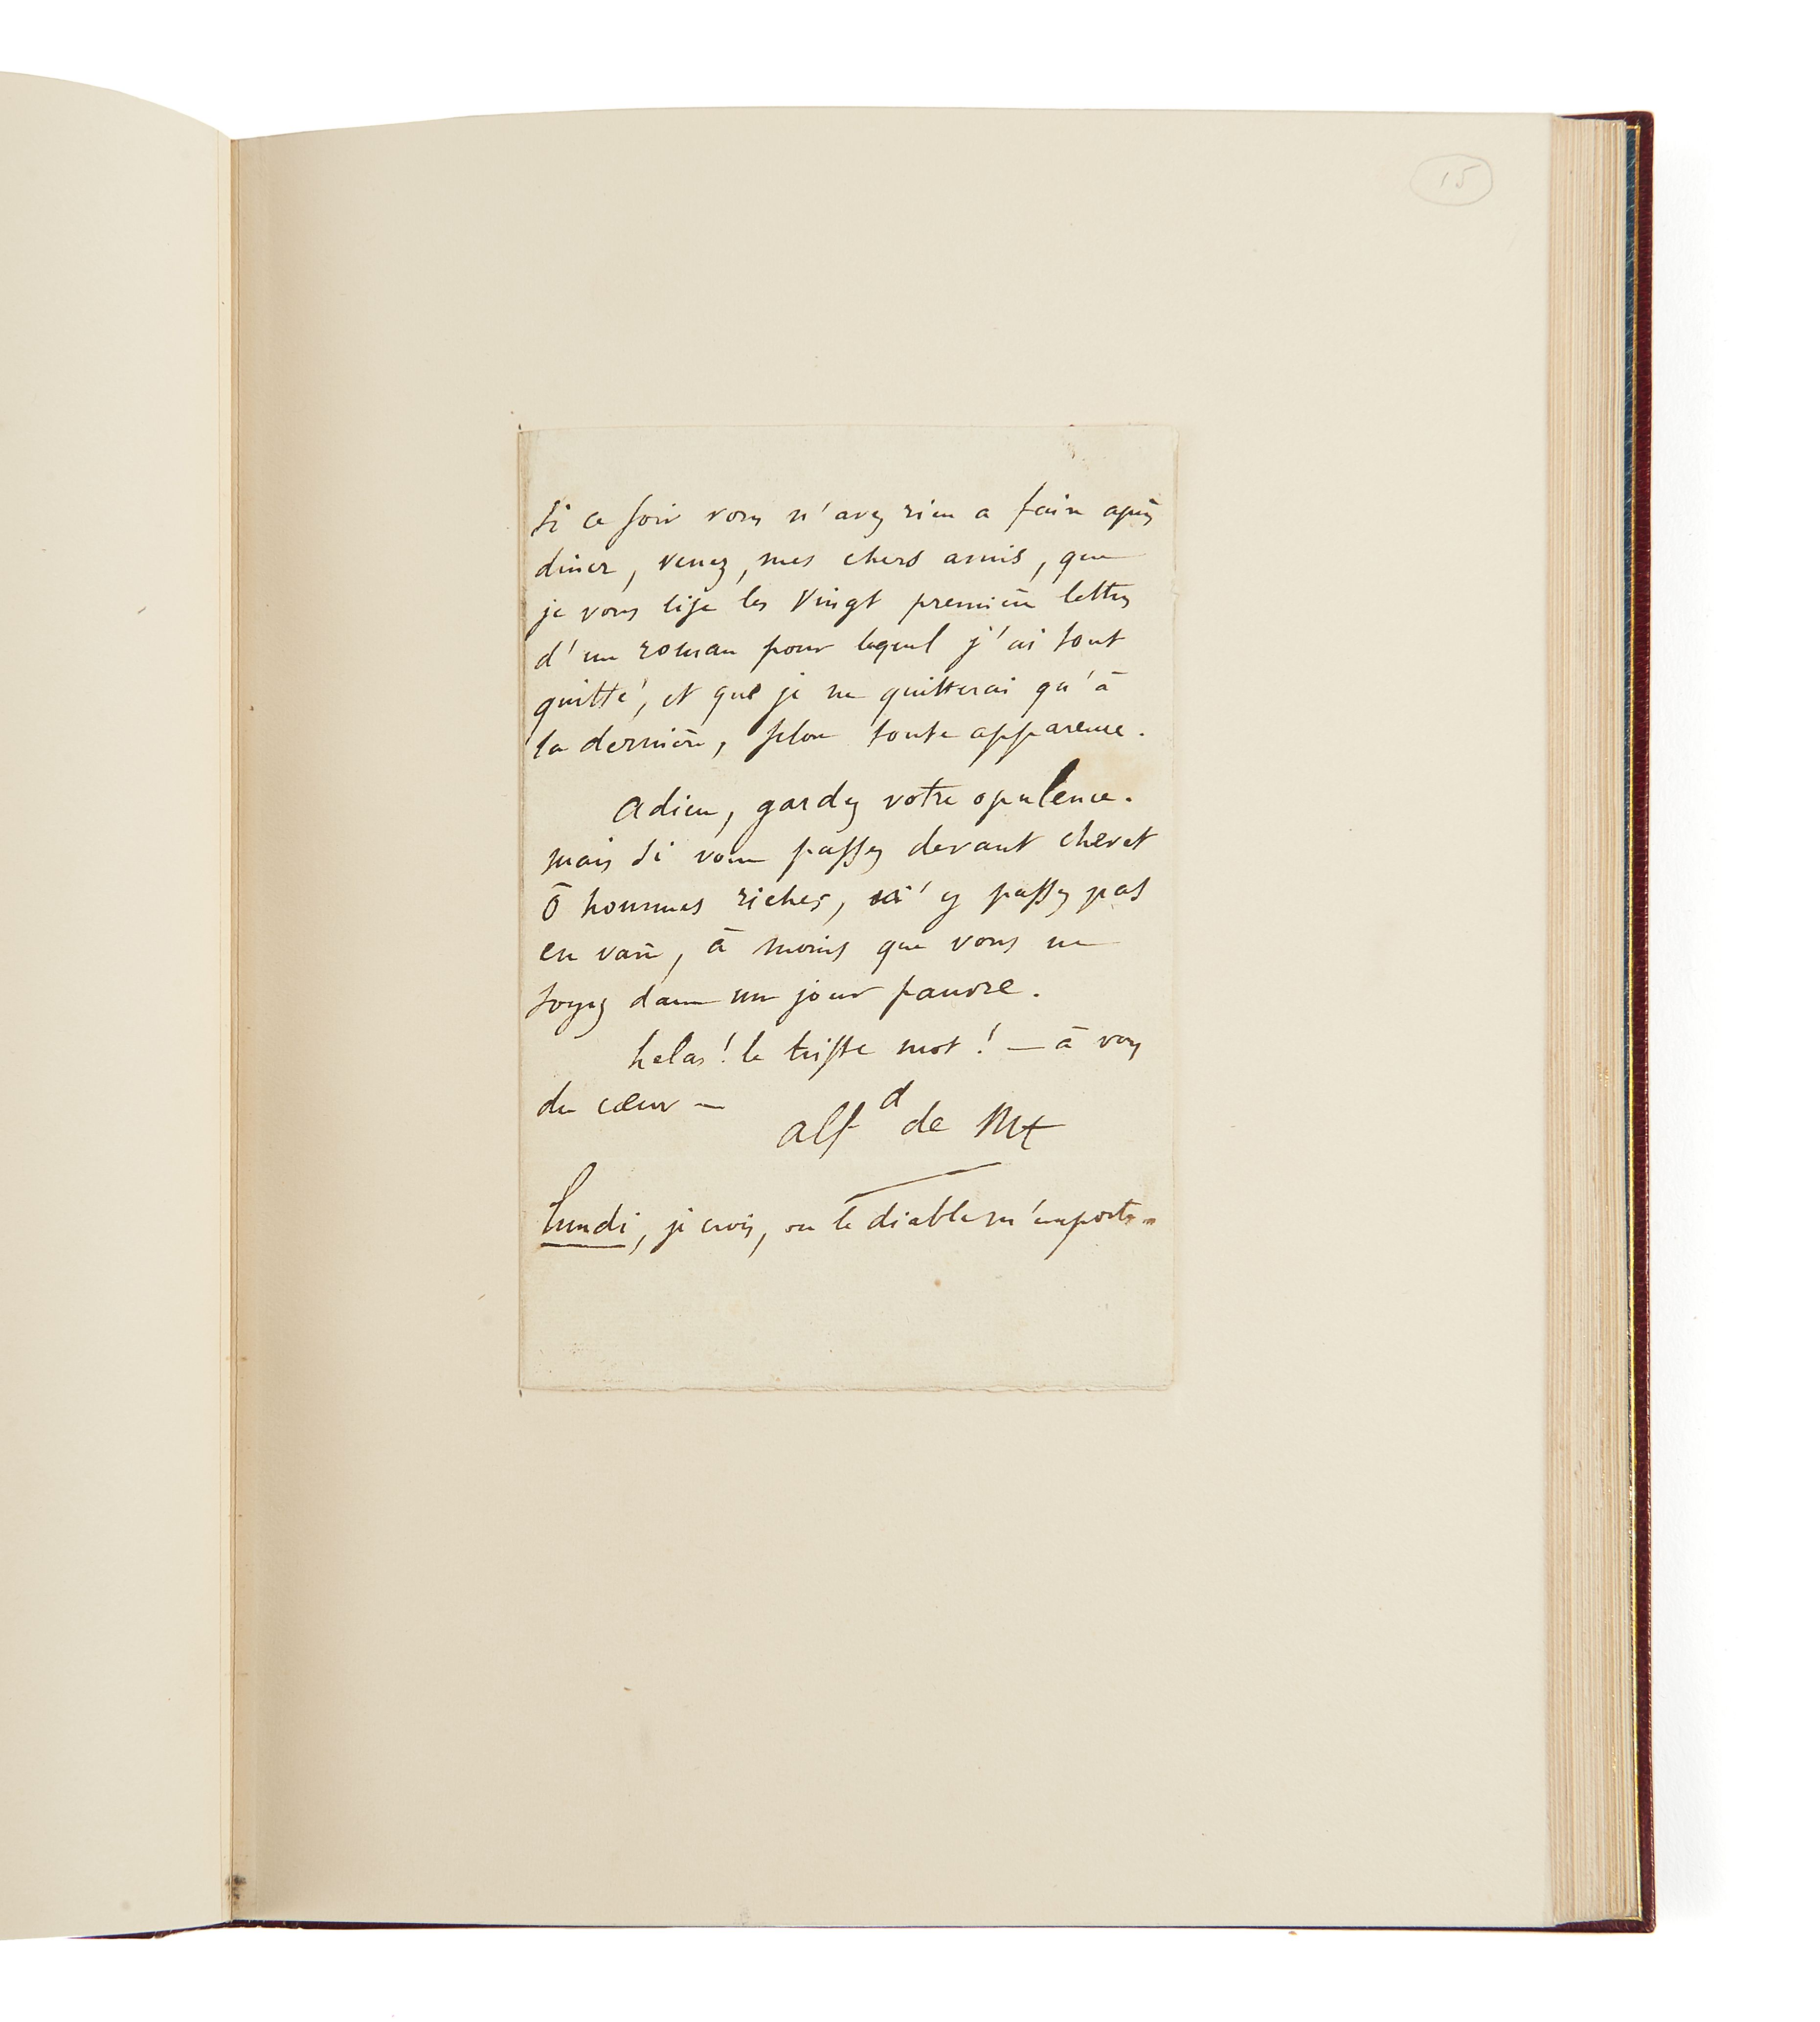 15
Si ce soir vous n'avez rien a faire après
diner, venez, mes chers amis, que
je vous lise les Vingt premières lettres
d'un roman pour lequel j'ai tout
quitté, et que je ne quitterai qu'à
la dernière, selon toute apparence.
adieu, gardez votre opulence.
mais si vous passez devant chevet
ô hommes riches, n'y passez pas
en vain, à moins que vous ne
soyez dans un jour pauvre.
helas! le triste mot! — à vous
du cœur —
alf d de Mt
lundi, je crois, ou le diable m'emporte